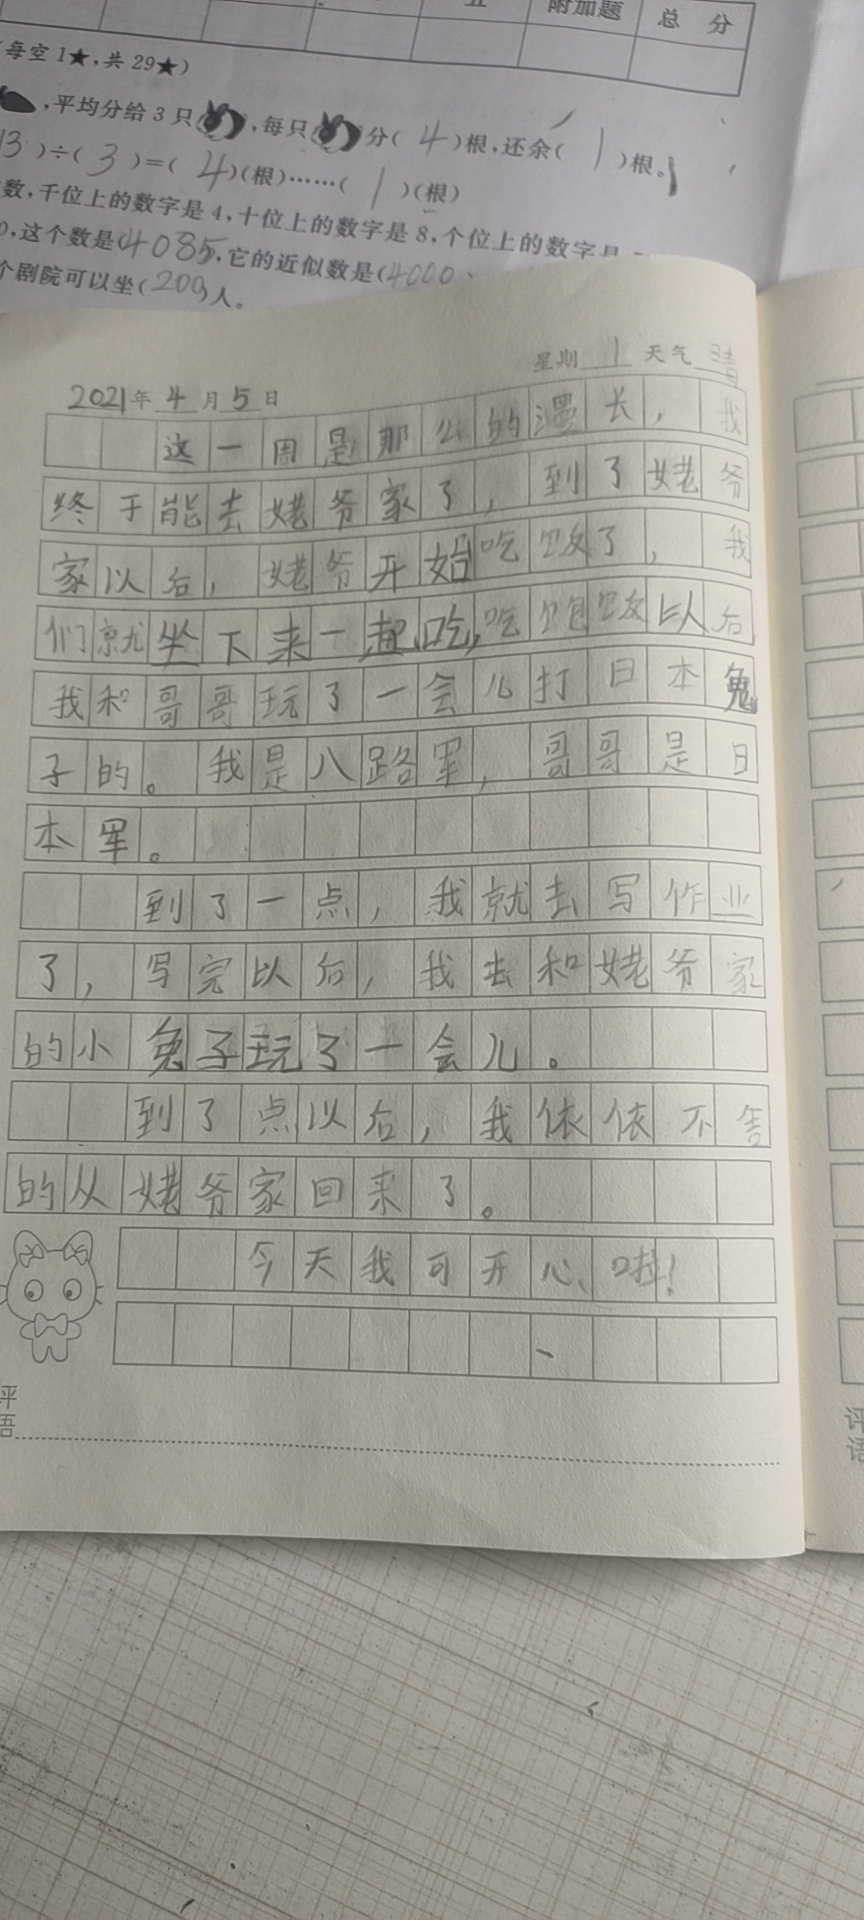 五 附加题 总 分
(每空1★,共29★)
,平均分给3只 ,每只 分( 4 )根,还余( 1 )根。
13 )÷( 3 )=( 4 )(根)……( 1 )(根)
数,千位上的数字是4,十位上的数字是8,个位上的数字是
0,这个数是(4085,它的近似数是(4000
个剧院可以坐(200)人。
星期 1 天气 晴
2021年 4 月 5 日
这一周是那么的漫长,我
终于能去姥爷家了,到了姥爷
家以后,姥爷开始吃饭了,我
们就坐下来一起吃,吃饱饭以后
我和哥哥玩了一会儿打日本兔
子的。我是八路军,哥哥是日
本军。
到了一点,我就去写作业
了,写完以后,我去和姥爷家
的小兔子玩了一会儿。
到了点以后,我依依不舍
的从姥爷家回来了。
今天我可开心啦!
评语
评语